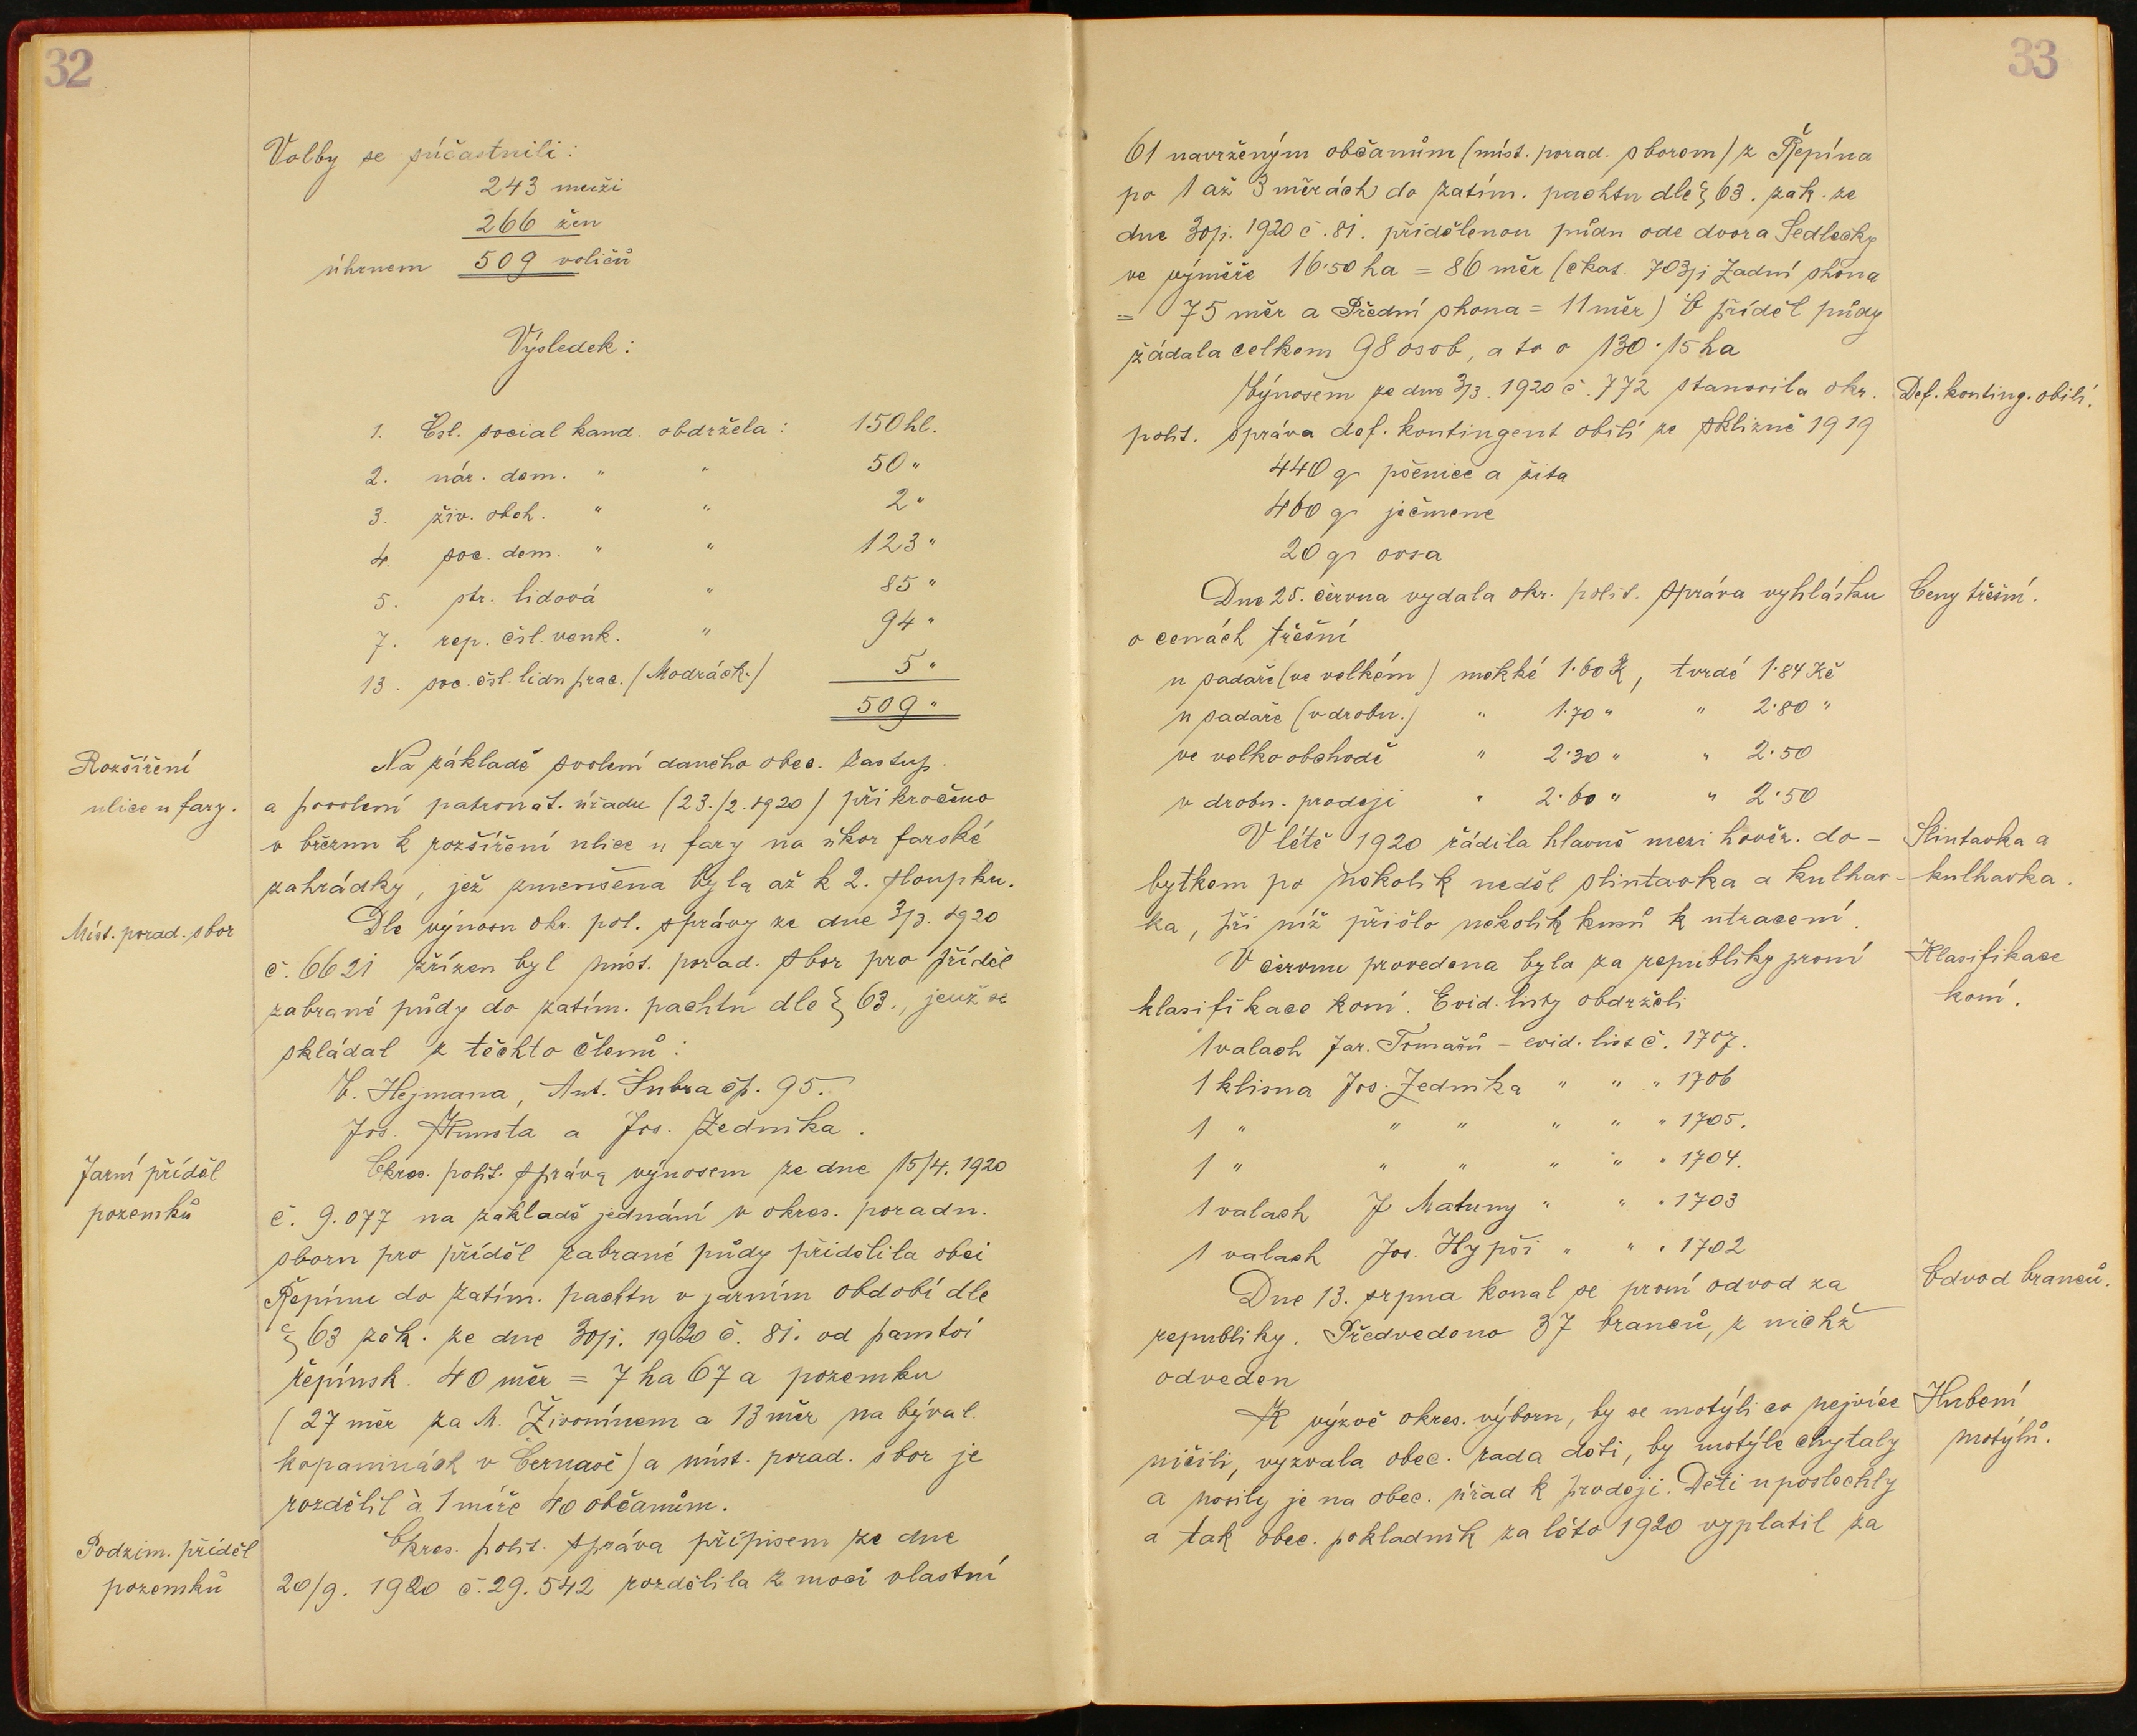 32
Volby se súčastnili:
243 muži
266 žen
úhrnem 509 voličů
Výsledek:
1. Čsl. social kand. obdržela: 150 hl.
2. nár. dem. " " 50 "
3. živ. obch. " " 2 "
4. soc. dem. " " 123 "
5. str. lidová " 85 "
7. rep. čsl. venk. " 94 "
13. soc. čsl. lidu prac. (Modráčk.) 5 "
509 "
Rozšíření
ulice u fary.
Na základě svolení daného obec. zastup.
a povolení patronát. úřadu (23./2. 1920) přikročeno
v březnu k rozšíření ulice u fary na úkor farské
zahrádky, jež zmenšena byla až k 2. sloupku.
Míst. porad. sbor
Dle výnosu okr. pol. správy ze dne 3/3. 1920
č. 6621 zřízen byl míst. porad. sbor pro příděl
zabrané půdy do zatím. pachtu dle § 63., jenž se
skládal z těchto členů:
V. Hejmana, Ant. Šubra čp. 95.
Jos. Kunsta a Jos. Zedníka.
Jarní příděl
pozemků
Okres. polit. správa výnosem ze dne 15/4. 1920
č. 9.077 na základě jednání v okres. poradn.
sboru pro příděl zabrané půdy přidělila obci
Řepínu do zatím. pachtu v jarním období dle
§ 63 zák. ze dne 30/1. 1920 č. 81. od panství
řepínsk. 40 měr = 7 ha 67 a pozemku
(27 měr za M. Živonínem a 13 měr na býval.
kopaninách v Černavě) a míst. porad. sbor je
rozdělil à 1 míře 40 občanům.
Podzim. příděl
pozemků
Okres. polit. správa přípisem ze dne
20/9. 1920 č. 29.542 rozdělila z moci vlastní
33
61 navrženým občanům (míst. porad. sborem) z Řepína
po 1 až 3 měrách do zatím. pachtu dle § 63. zák. ze
dne 30/1. 1920 č. 81. přidělenou půdu ode dvora Sedlecky
ve výměře 16·50 ha = 86 měr (čkat. 703/1 Zadní shona
= 75 měr a Přední shona = 11 měr) O příděl půdy
žádala celkem 98 osob, a to o 130·15 ha
Výnosem ze dne 3/3. 1920 č. 772 stanovila okr.
Def. konting. obilí.
polit. správa def. kontingent obilí ze sklizně 1919
440 q pšenice a žita
460 q ječmene
20 q ovsa
Dne 25. června vydala okr. polit. správa vyhlášku
Ceny třešní.
o cenách třešní
u sadaře (ve velkém) měkké 1·60 K, tvrdé 1·84 Kč
u sadaře (v drobn.) " 1·70 " " 2·80 "
ve velkoobchodě " 2·30 " " 2·50
v drobn. prodeji " 2·60 " " 2·50
V létě 1920 řádila hlavně mezi hověz. do-
Slintavka a
bytkem po několik neděl slintavka a kulhav-
kulhavka.
ka, při níž přišlo několik kusů k utracení.
V červnu provedena byla za republiky první
Klasifikace
koní.
klasifikace koní. Evid. listy obdrželi
1 valach Jar. Tomašů - evid. list č. 1707.
1 klisna Jos. Zedníka " " " 1706
1 " " " " " " 1705.
1 " " " " " " 1704.
1 valach J Matuny " " " 1703
1 valach Jos. Hypši " " " 1702
Dne 13. srpna konal se první odvod za
Odvod branců.
republiky. Předvedeno 37 branců, z nichž
odveden
K výzvě okres. výboru, by se motýli co nejvíce
Hubení
motýlů.
ničili, vyzvala obec. rada děti, by motýle chytaly
a nosily je na obec. úřad k prodeji. Děti uposlechly
a tak obec. pokladník za léto 1920 vyplatil za